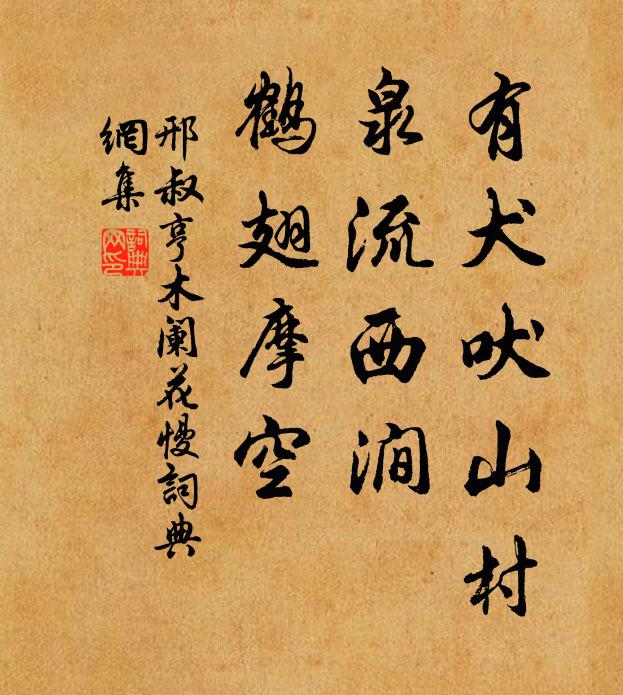 有犬吠山村
泉流西涧
鹤翅摩空
邢叔亨木阑花慢詞典
網集
詞典
网印